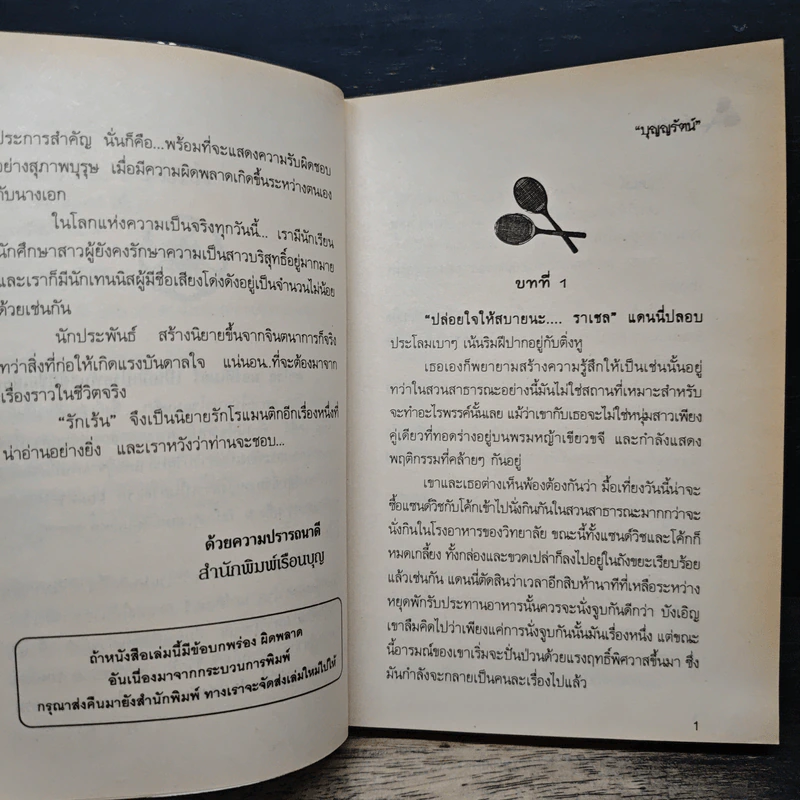 ประการสำคัญ นั่นก็คือ...พร้อมที่จะแสดงความรับผิดชอบ
อย่างสุภาพบุรุษ เมื่อมีความผิดพลาดเกิดขึ้นระหว่างตนเอง
กับนางเอก
ในโลกแห่งความเป็นจริงทุกวันนี้... เรามีนักเรียน
นักศึกษาสาวผู้ยังคงรักษาความเป็นสาวบริสุทธิ์อยู่มากมาย
และเราก็มีนักเทนนิสผู้มีชื่อเสียงโด่งดังอยู่เป็นจำนวนไม่น้อย
ด้วยเช่นกัน
นักประพันธ์ สร้างนิยายขึ้นจากจินตนาการก็จริง
ทว่าสิ่งที่ก่อให้เกิดแรงบันดาลใจ แน่นอน.ที่จะต้องมาจาก
เรื่องราวในชีวิตจริง
“รักเร้น” จึงเป็นนิยายรักโรแมนติกอีกเรื่องหนึ่งที่
น่าอ่านอย่างยิ่ง และเราหวังว่าท่านจะชอบ...
ด้วยความปรารถนาดี
สำนักพิมพ์เรือนบุญ
ถ้าหนังสือเล่มนี้มีข้อบกพร่อง ผิดพลาด
อันเนื่องมาจากกระบวนการพิมพ์
กรุณาส่งคืนมายังสำนักพิมพ์ ทางเราจะจัดส่งเล่มใหม่ไปให้
“บุญญรัตน์”
บทที่ 1
“ปล่อยใจให้สบายนะ.... ราเชล” แดนนี่ปลอบ
ประโลมเบาๆ เน้นริมฝีปากอยู่กับติ่งหู
เธอเองก็พยายามสร้างความรู้สึกให้เป็นเช่นนั้นอยู่
ทว่าในสวนสาธารณะอย่างนี้มันไม่ใช่สถานที่เหมาะสำหรับ
จะทำอะไรพรรค์นั้นเลย แม้ว่าเขากับเธอจะไม่ใช่หนุ่มสาวเพียง
คู่เดียวที่ทอดร่างอยู่บนพรมหญ้าเขียวขจี และกำลังแสดง
พฤติกรรมที่คล้ายๆ กันอยู่
เขาและเธอต่างเห็นพ้องต้องกันว่า มื้อเที่ยงวันนี้น่าจะ
ซื้อแซนด์วิชกับโค้กเข้าไปนั่งกินกันในสวนสาธารณะมากกว่าจะ
นั่งกินในโรงอาหารของวิทยาลัย ขณะนี้ทั้งแซนด์วิชและโค้กก็
หมดเกลี้ยง ทั้งกล่องและขวดเปล่าก็ลงไปอยู่ในถังขยะเรียบร้อย
แล้วเช่นกัน แดนนี่ตัดสินว่าเวลาอีกสิบห้านาทีที่เหลือระหว่าง
หยุดพักรับประทานอาหารนั้นควรจะนั่งจูบกันดีกว่า บังเอิญ
เขาลืมคิดไปว่าเพียงแค่การนั่งจูบกันนั้นมันเรื่องหนึ่ง แต่ขณะ
นี้อารมณ์ของเขาเริ่มจะปั่นป่วนด้วยแรงฤทธิ์พิศวาสขึ้นมา ซึ่ง
มันกำลังจะกลายเป็นคนละเรื่องไปแล้ว
1